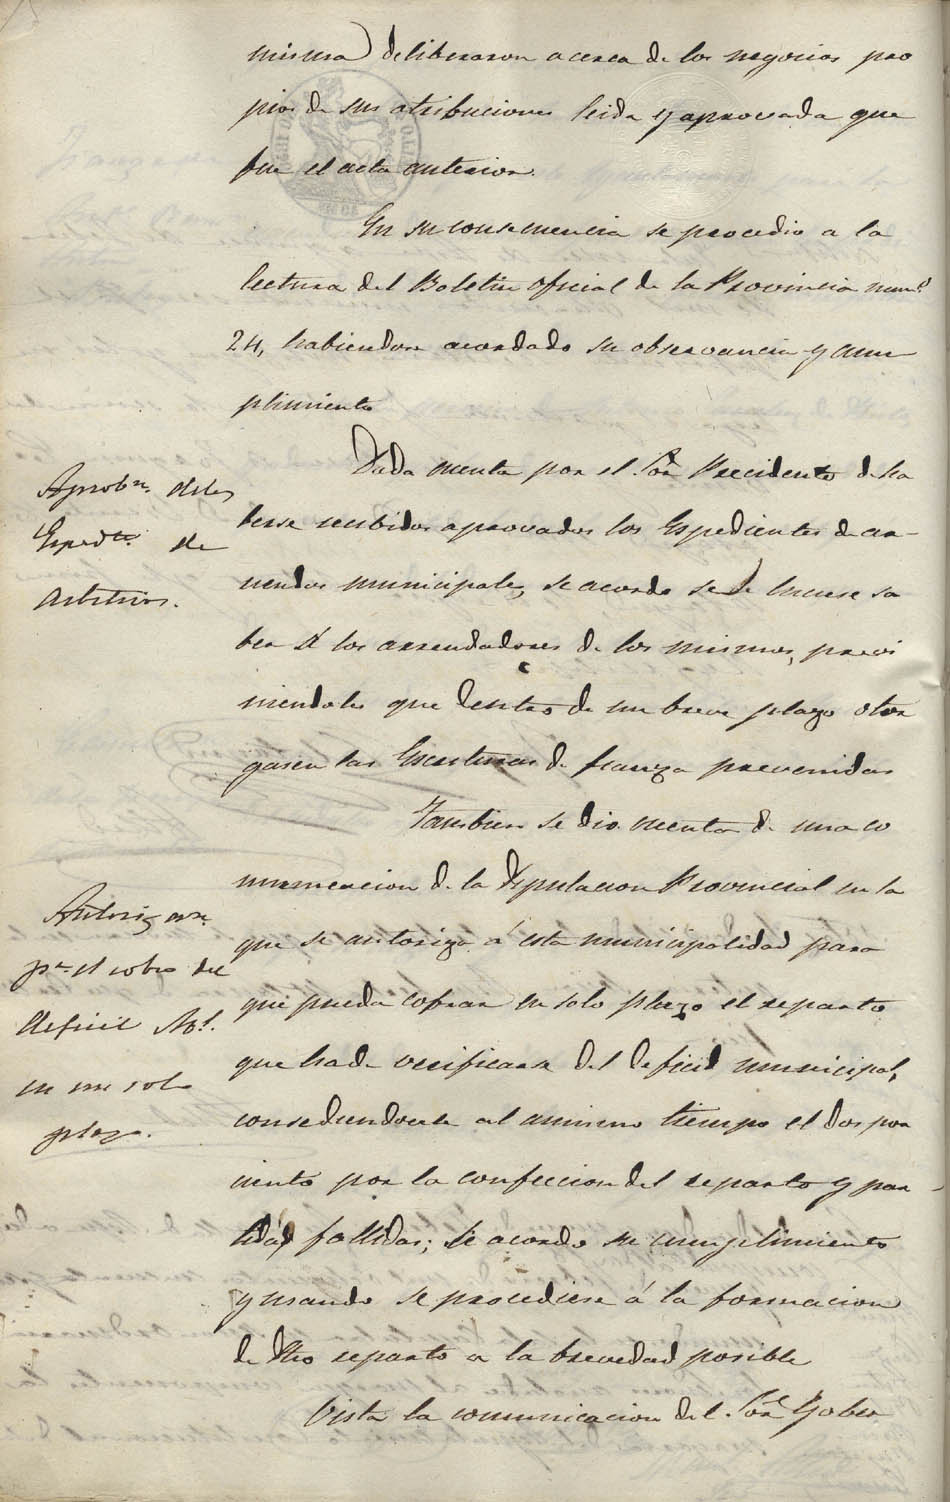 misma) deliberaron acerca de los negocios pro
pios de sus atribuciones leida y aprovada que
fue el acta anterior.
En su consecuencia se procedio a la
lectura del Boletin oficial de la Provincia num.º
24, habiendose acordado su observancia y cum
plimiento
Aprobn. delos
Espedtes. de
Arbitrios.
Dada cuenta por el Sor. Precidente de ha
berse recibidos aprovados los Espedientes de ar-
riendos municipales, se acordo se le hiciese sa
ber á los arrendadores de los mismos, previ
niendoles que dentro de un breve plazo otor
gasen las Escrituras de fianza prevenidas
Tambien se dio cuenta de una co
municacion de la Diputacion Provincial en la
que se autoriza á esta municipalidad para
que pueda cobrar en solo plazo el reparto
que ha de verificarse del deficid municipal,
consediendosele al mismo tiempo el dos por
ciento por la confeccion del reparto y par
tidas fallidas; Se acordo su cumplimiento
y usando se procediese á la formacion
de dho reparto a la brevedad posible
Autorizaon.
pa. el cobro del
deficit Ml.
en un solo
plazo.
Vista la comunicacion del Sor. Gober